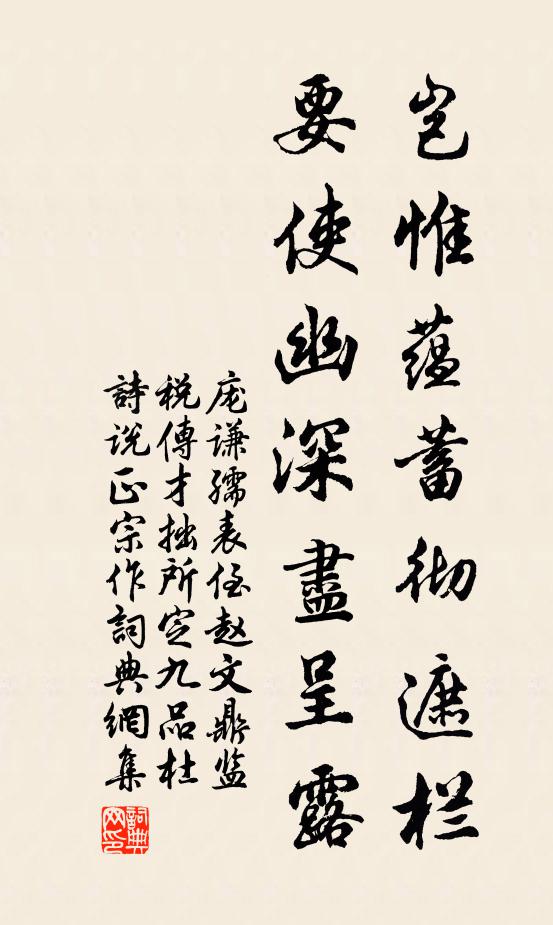 岂惟蕴蓄彻遮栏
要使幽深盡呈露
庞谦孺表侄赵文鼎监
税傳才拙所定九品杜
詩说正宗作詞典網集
詞典网印